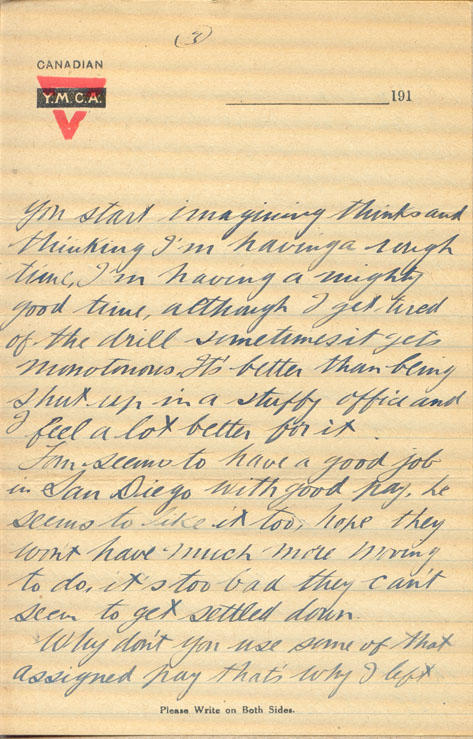 (3)
CANADIAN
Y.M.C.A.
191
You start imagining thinks and
thinking I'm having a rough
time, I'm having a mighty
good time, although I get tired
of the drill sometimes it gets
monotonous. It's better than being
shut up in a stuffy office and
I feel a lot better for it.
Tom seems to have a good job
in San Diego with good pay, he
seems to like it too, hope they
wont have much more moving
to do, it's too bad they can't
seem to get settled down.
Why don't you use some of that
assigned pay that's why I left
Please Write on Both Sides.